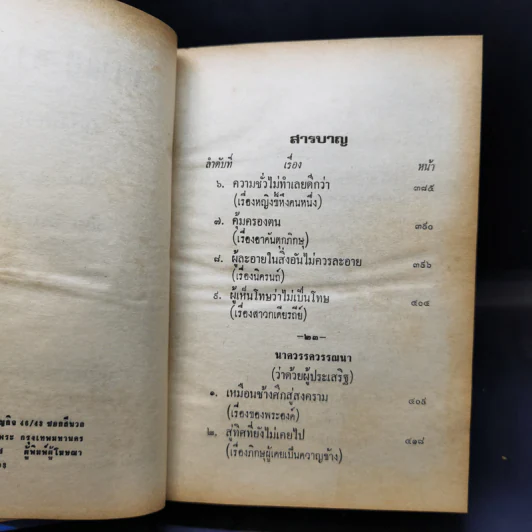 สารบาญ
ลำดับที่ เรื่อง หน้า
๖. ความชั่วไม่ทำเลยดีกว่า ๓๘๕
(เรื่องหญิงขี้หึงคนหนึ่ง)
๗. คุ้มครองตน ๓๙๐
(เรื่องอาคันตุกภิกษุ)
๘. ผู้ละอายในสิ่งอันไม่ควรละอาย ๓๙๖
(เรื่องนิครนถ์)
๙. ผู้เห็นโทษว่าไม่เป็นโทษ ๔๐๔
(เรื่องสาวกเดียรถีย์)
—๒๓—
นาควรรควรรณนา
(ว่าด้วยผู้ประเสริฐ)
๑. เหมือนช้างศึกสู่สงคราม ๔๐๙
(เรื่องของพระองค์)
๒. สู่ทิศที่ยังไม่เคยไป ๔๑๘
(เรื่องภิกษุผู้เคยเป็นควาญช้าง)
ซอยสีบวล
พระ กรุงเทพมหานคร
ผู้พิมพ์ผู้โฆษณา